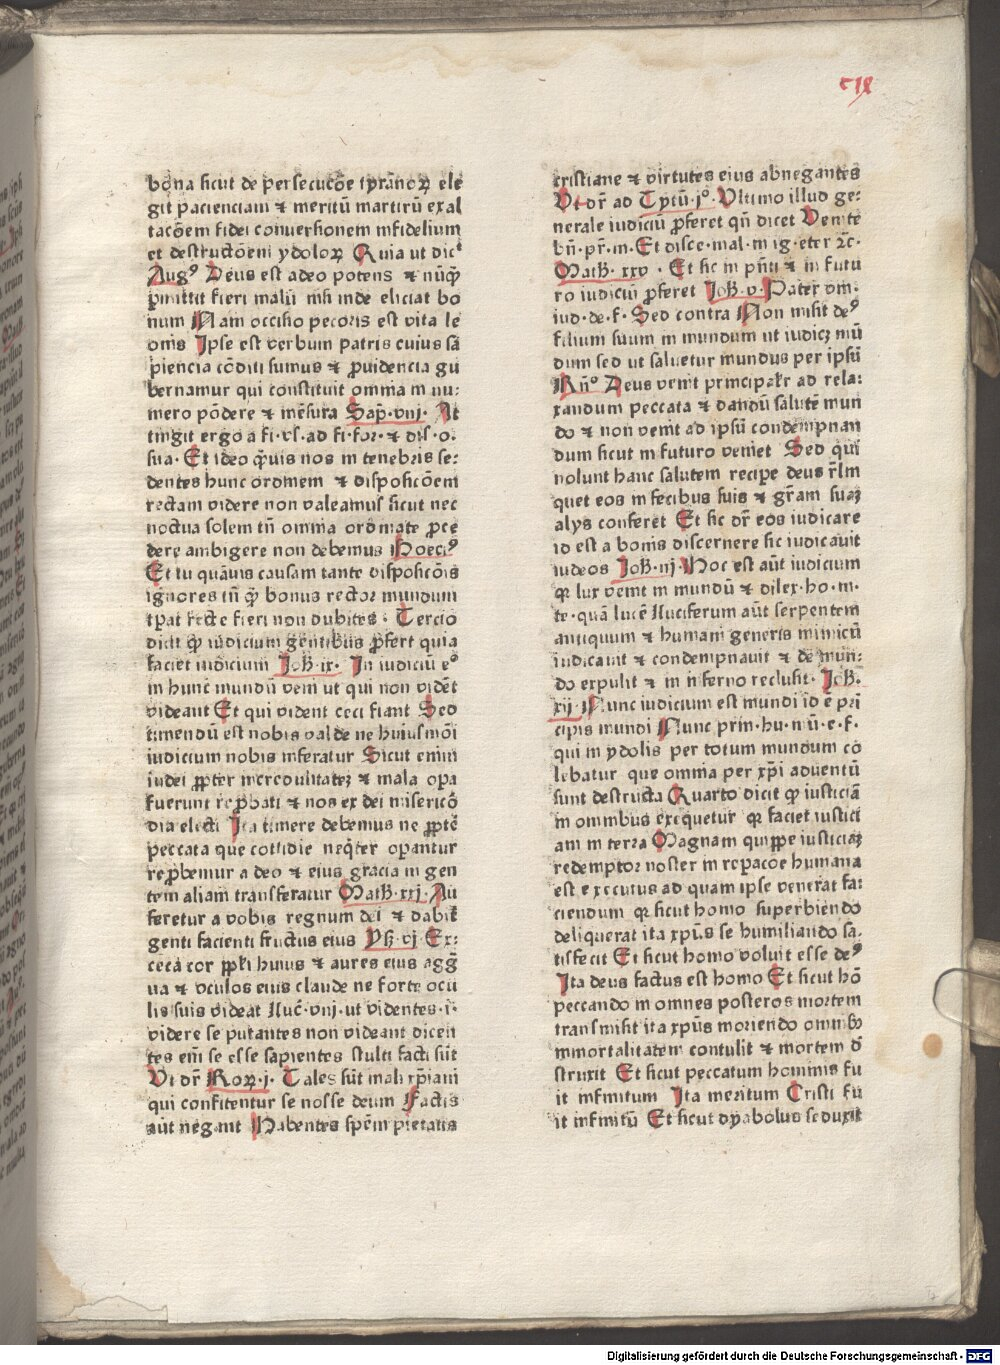 clx
bona sicut de ꝑsecucōe tyrānoꝝ ele
git pacienciam ⁊ meritū martirū exal
tacōem fidei conuersionem infidelium
et destructōem ydoloꝝ Quia ut dic͛
Augꝰ Deus est adeo potens ⁊ nūꝙ
ꝑmittit fieri malū nisi inde eliciat bo
num Nam occisio pecoris est vita le
onis Ipse est verbum patris cuius sa
piencia cōditi sumus ⁊ ꝓuidencia gu
bernamur qui constituit omnia in nu⸗
mero pōdere ⁊ mēsura Sap̄·viij· At
tingit ergo a fi·vs·ad fi·for·⁊ dis·o·
sua· Et ideo q̄uis nos in tenebris se⸗
dentes hunc ordinem ⁊ disposicōem
rectam videre non valeamus sicut nec
noctua solem tn̄ omnia ordinate ꝓce
dere ambigere non debemus Boeciꝰ
Et tu quāuis causam tante disposicōis
ignores tn̄ ꝙ bonus rector mundum
tꝑat recte fieri non dubites· Tercio
dicit ꝙ iudicium gentibus ꝓfert quia
faciet iudicium Joh̄·ix· In iudiciū eᵒ
in hunc mundū veni ut qui non vidēt
videant Et qui vident ceci fiant Sed
timendū est nobis valde ne huiusmōi
iudicium nobis inferatur Sicut enim
iudei ꝓpter incredulitatez ⁊ mala oꝑa
fuerunt reꝓbati ⁊ nos ex dei misericō
dia electi Ita timere debemus ne ꝓpt͛
peccata que cottidie neq̄ter oꝑantur
reꝓbemur a deo ⁊ eius gracia in gen
tem aliam transferatur Math̄·xxj· Au
feretur a vobis regnum dei ⁊ dabit̄
genti facienti fructus eius Ysa·vj Ex⸗
ceca cor ppl̄i huius ⁊ aures eius aggͣ
ua ⁊ oculos eius claude ne forte ocu
lis suis videat Luc̄·viij·ut videntes·i·
videre se putantes non videant dicen
tes em̄ se esse sapientes stulti facti sūt
Vt dr̄ Roꝝ·j· Tales sūt mali xp̄iani
qui confitentur se nosse deum Factis
aūt negant Habentes spēm pietatis
cristiane ⁊ virtutes eius abnegantes
Vt dr̄ ad Tytū·jᵒ· Vltimo illud ge⸗
nerale iudiciū ꝓferet qn̄ dicet Venite
bn̄·pr̄·m·Et disce·mal·in ig·eter ⁊c̄·
Math̄·xxv· Et sic in pn̄ti ⁊ in futu
ro iudiciū ꝓferet Joh̄·v· Pater om̄·
iud·de·f· Sed contra Non misit deꝰ
filium suum in mundum ut iudicꝫ mū
dum sed ut saluetur mundus per ipsū
Rn̄ᵒ Deus venit principalr̄ ad rela⸗
xandum peccata ⁊ dandū salutē mun
do ⁊ non venit ad ipsū condempnan
dum sicut in futuro veniet Sed qui
nolunt hanc salutem recipe deus rl̄in
quet eos in fecibus suis ⁊ grām suaꝫ
alijs conferet Et sic dr̄ eos iudicare
id est a bonis discernere sic iudicauit
iudeos Joh̄·iij Hoc est aūt iudicium
qꝛ lux venit in mundū ⁊ dilex·ho·m·
te·quā lucē Luciferum aūt serpentem
antiquum ⁊ humani generis inimicū
iudicauit ⁊ condempnauit ⁊ de mun⸗
do expulit ⁊ in inferno reclusit· Joh̄·
xij· Nunc iudicium est mundi id ē pri
cipis mundi Nunc prin·hu·n̄ū·e·f·
qui in ydolis per totum mundum co
lebatur que omnia per xp̄i aduentū
sunt destructa Quarto dicit ꝙ iusticiā
in omnibus exequetur qꝛ faciet iustici
am in terra Magnam quippe iusticiaꝫ
redemptor noster in reꝑacōe humana
est executus ad quam ipse venerat fa⸗
ciendum qꝛ sicut homo superbiendo
deliquerat ita xpūs se humiliando sa⸗
tisfecit Et sicut homo voluit esse deꝰ
Ita deus factus est homo Et sicut hō
peccando in omnes posteros mortem
transmisit ita xpūs moriendo omnibꝫ
immortalitatem contulit ⁊ mortem de
struxit Et sicut peccatum hominis fu
it infinitum Ita meritum Cristi fu
it infinitū Et sicut dyabolus seduxit
Digitalisierung gefördert durch die Deutsche Forschungsgemeinschaft - DFG